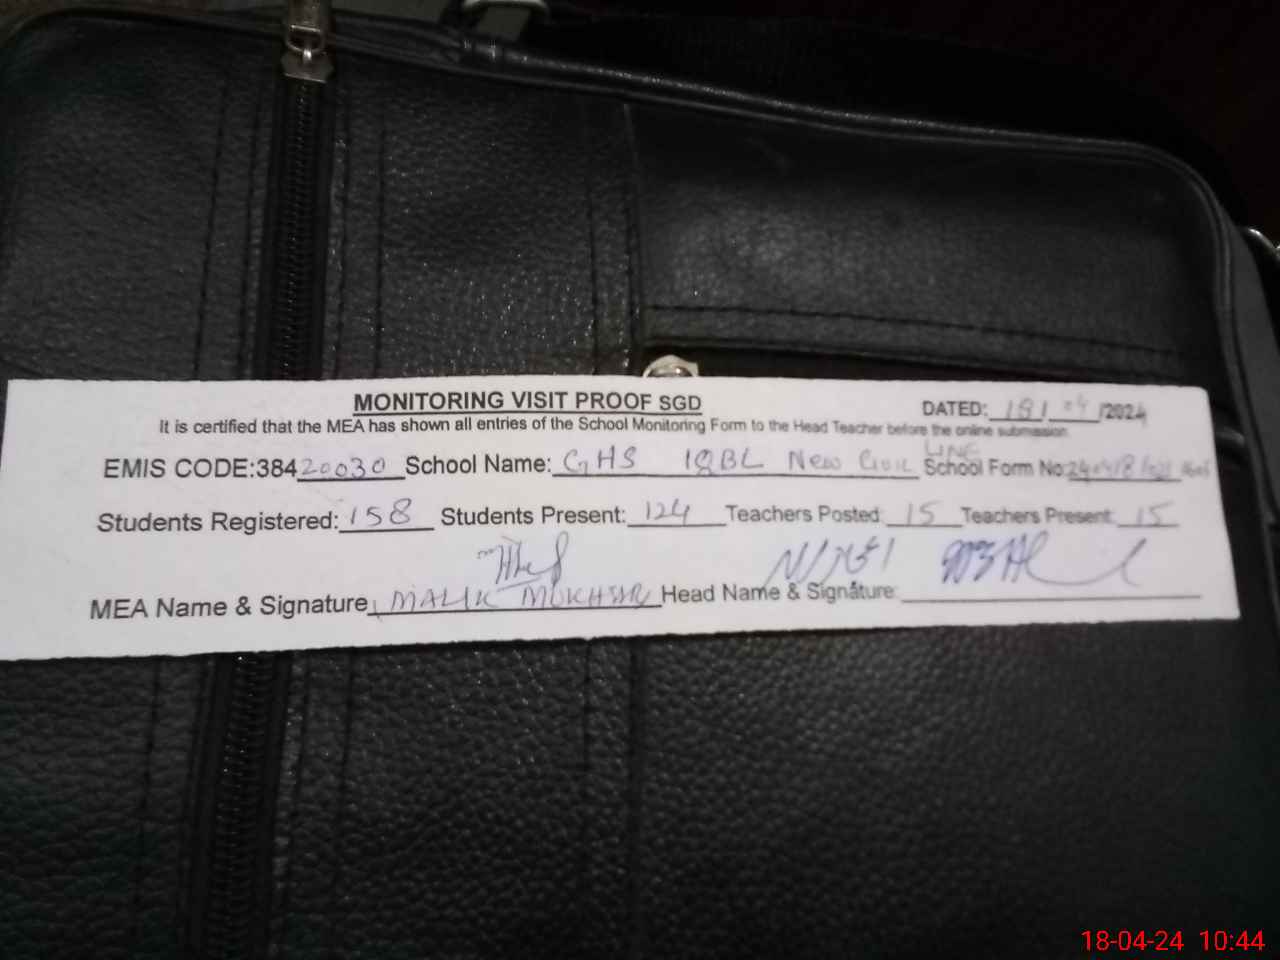 MONITORING VISIT PROOF SGD
DATED: 18/04/2024
It is certified that the MEA has shown all entries of the School Monitoring Form to the Head Teacher before the online submission.
EMIS CODE:38420030 School Name: GHS IQBL New Civil LINE School Form No:
Students Registered: 158 Students Present: 124 Teachers Posted: 15 Teachers Present: 15
MEA Name & Signature MALIK Head Name & Signature:
18-04-24 10:44